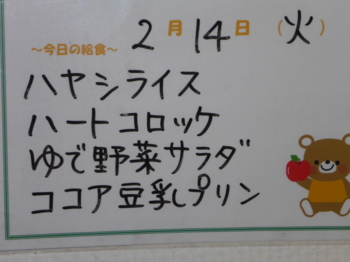 ～今日の給食～ 2月14日(火)
ハヤシライス
ハートコロッケ
ゆで野菜サラダ
ココア豆乳プリン